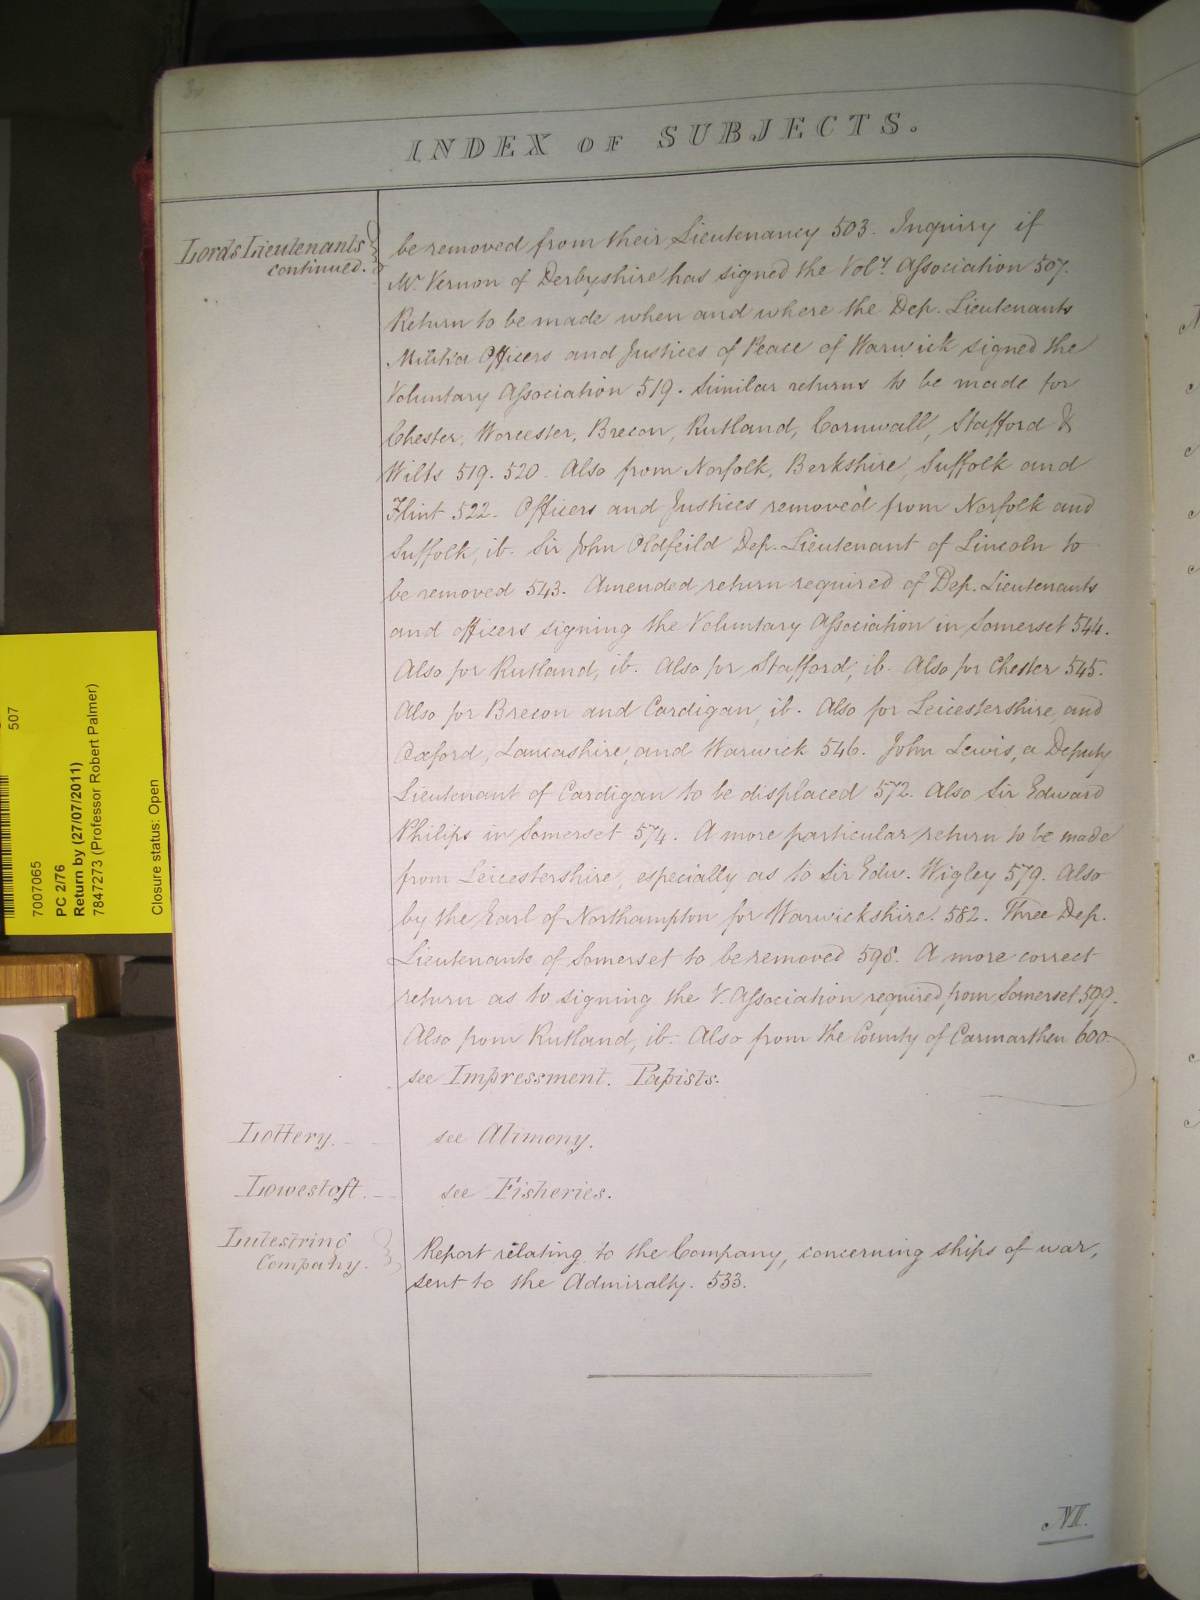 INDEX OF SUBJECTS.
Lords Lieutenants
continued.
be removed from their Lieutenancy 503. Inquiry if
Mr. Vernon of Derbyshire has signed the Voly. Association 507.
Return to be made when and where the Dep. Lieutenants
Militia Officers and Justices of Peace of Warwick signed the
Voluntary Association 519. Similar returns to be made for
Chester, Worcester, Brecon, Rutland, Cornwall, Stafford &
Wilts 519. 520. Also from Norfolk, Berkshire, Suffolk and
Flint 522. Officers and Justices removed from Norfolk and
Suffolk, ib. Sir John Oldfeild Dep. Lieutenant of Lincoln to
be removed 543. Amended return required of Dep. Lieutenants
and officers signing the Voluntary Association in Somerset 544.
Also for Rutland, ib. Also for Stafford, ib. Also for Chester 545.
Also for Brecon and Cardigan, ib. Also for Leicestershire, and
Oxford, Lancashire, and Warwick 546. John Lewis, a Deputy
Lieutenant of Cardigan to be displaced 572. Also Sir Edward
Philips in Somerset 574. A more particular return to be made
from Leicestershire, especially as to Sir Edw. Wigley 579. Also
by the Earl of Northampton for Warwickshire. 582. Three Dep.
Lieutenants of Somerset to be removed 598. A more correct
return as to signing the V. Association required from Somerset 599.
Also from Rutland, ib. Also from the County of Carmarthen 600.
see Impressment. Papists.
Lottery. see Alimony.
Lowestoft. see Fisheries.
Lutestring
Company.
Report relating to the Company, concerning ships of war,
sent to the Admiralty. 533.
507
7007065
PC 2/76
Return by (27/07/2011)
7847273 (Professor Robert Palmer)
Closure status: Open